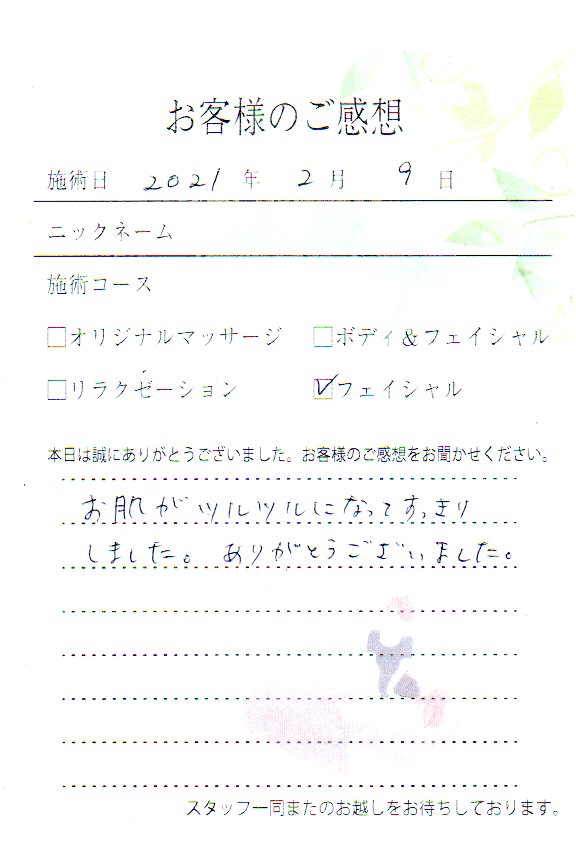 お客様のご感想
施術日 2021 年 2 月 9 日
ニックネーム
施術コース
□オリジナルマッサージ □ボディ&フェイシャル
□リラクゼーション ☑フェイシャル
本日は誠にありがとうございました。お客様のご感想をお聞かせください。
お肌がツルツルになってすっきり
しました。ありがとうございました。
スタッフ一同またのお越しをお待ちしております。